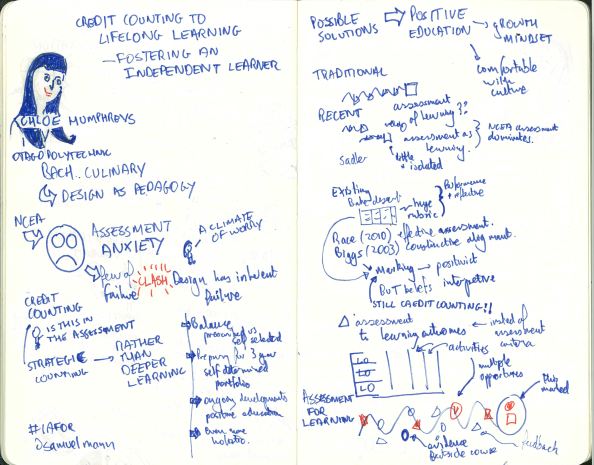 CREDIT COUNTING TO
LIFELONG LEARNING
– FOSTERING AN
INDEPENDENT LEARNER
CHLOE HUMPHREYS
OTAGO POLYTECHNIC
BACH. CULINARY
DESIGN AS PEDAGOGY
NCEA
ASSESSMENT
ANXIETY
A CLIMATE
OF WORRY
fear of
failure
CLASH
Design has inherent
failure
CREDIT
COUNTING
IS THIS IN
THE ASSESSMENT
STRATEGIC
COUNTING
RATHER
THAN
DEEPER
LEARNING
Balance
prescribed vs
self selected
Prepare for 3 year
self determined
portfolio
ongoing developments
positive education
Even more
holistic.
#IAFOR
@samuelmann
POSSIBLE
SOLUTIONS
POSITIVE
EDUCATION
GROWTH
MINDSET
comfortable
within
culture
TRADITIONAL
RECENT
assessment
of learning??
assessment as
learning.
NCEA assessment
dominates.
Sadler
little
+ isolated
Existing
huge
rubric
Performance
+ reflective
Race (2010) effective assessment.
Biggs (2003) constructive alignment.
Marking → positivist
BUT beliefs interpretive
STILL CREDIT COUNTING!!
△ assessment
to learning outcomes ← instead of
assessment
criteria
activities
LO
LO
LO
multiple
opportunities
ASSESSMENT
FOR
LEARNING
this
marked
evidence
outside course
feedback